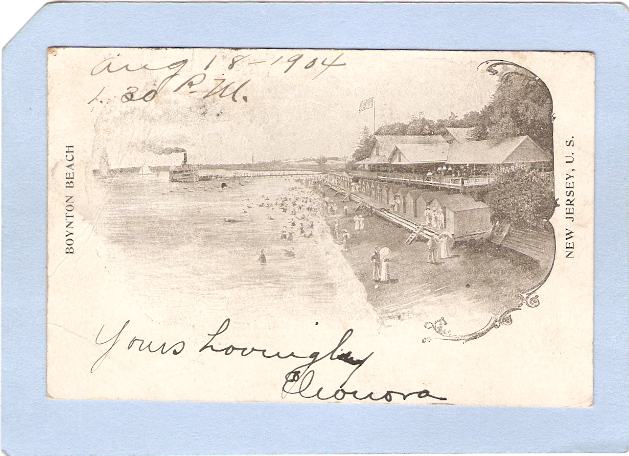 Aug 18-1904
4.30 P.M.
BOYNTON BEACH
NEW JERSEY, U. S.
Yours Lovingly
Eleonora